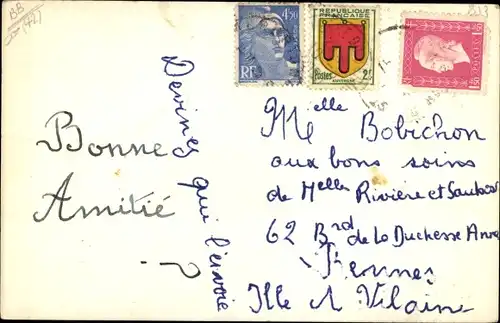 BB
4F50
RF
REPUBLIQUE
FRANCAISE
Postes
AUVERGNE
2F
1F50
Bonne
Amitié
Devinez qui l'envoie
?
Melle Bobichon
aux bons soins
de Melles Rivière et
62 Brd de La Duchesse Anne
Rennes
Ille et Vilaine